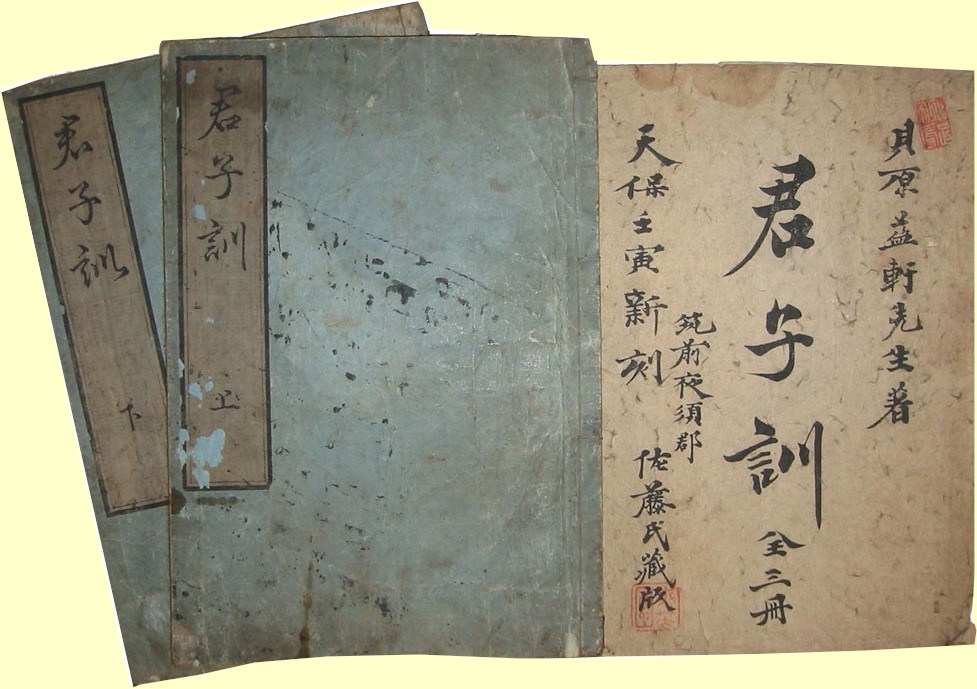 貝原益軒先生著
君子訓 全三冊
天保壬寅新刻
筑前夜須郡
佐藤氏藏版
君子訓 上
君子訓 下